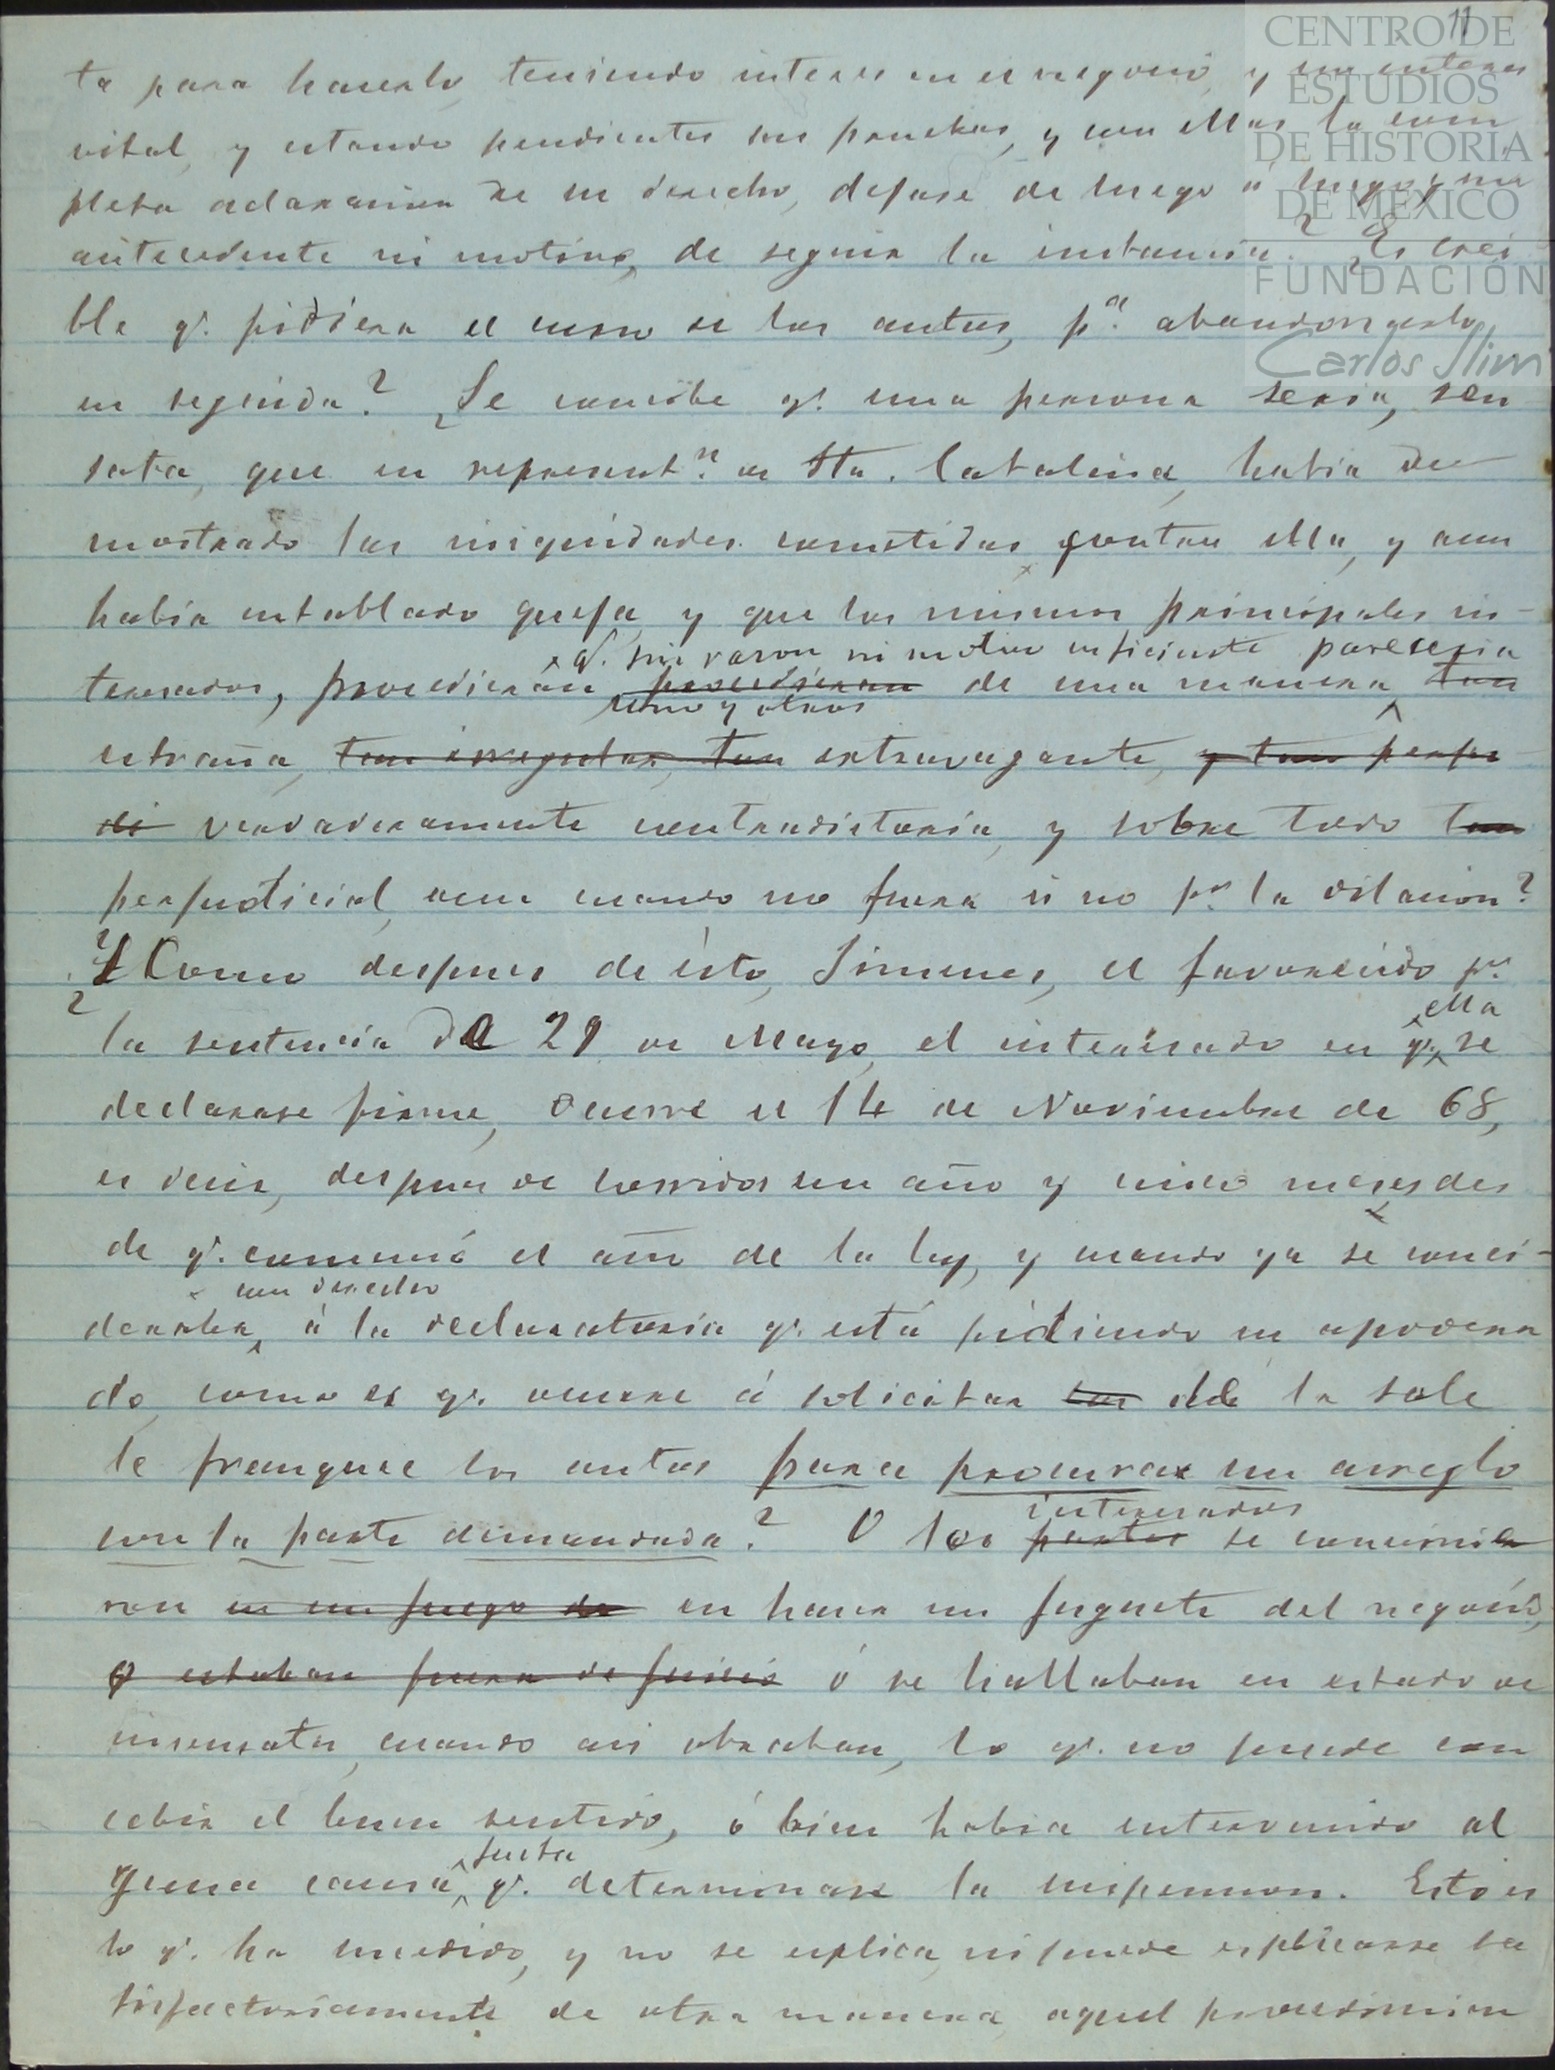 11
CENTRO DE
ESTUDIOS
DE HISTORIA
DE MÉXICO
FUNDACIÓN
Carlos Slim
ta para hacerlo, teniendo interes en el negocio, y un interes
vital, y estando pendientes sus pruebas, y con ellas la com
pleta aclaracion de su derecho, dejase de luego á luego y sin
antecedente ni motivo, de seguir la instancia? ¿Es crei
ble q. pidiera el curso de los autos, p.ª abandonarlo
en seguida? ¿Se concibe q. una persona seria, sen
sata, que en represent.n de Sta. Catalina, habia de
mostrado las iniquidades cometidas contra ella, y aun
habia entablado queja, y que los mismos principales in-
q. sin razon ni motivo suficiente pareceria
teresados, procedieran procedieran de una manera tan
uno y otros
estraña, tan irregular, tan extravagante, y tan perju
di verdaderamente contradictoria, y sobre todo tan
perjudicial, aun cuando no fuera si no p.r la dilacion?
¿Como despues de ésto, Jimenes, el favorecido p.r
ella
la sentencia de 29 de Mayo, el interesado en q. se
declarase firme, ocurre el 14 de Noviembre de 68,
es decir, despues de corridos un año y cinco meses des
de q. comenzó el año de la ley, y cuando ya se consi-
con derecho
deraba, á la declaratoria q. está pidiendo su apodera
do, como es q. ocurre á solicitar los de la sala
le franquee los autos para procurar un arreglo
interesados
con la parte demandada? O los partes se convinie
ron en un juego de en hacer un juguete del negocio,
ó estaban fuera de juicio ó se hallaban en estado de
insensatez, cuando asi obraban, lo q. no puede con
cebir el buen sentido, ó bien habia intervenido al
justa
guna causa q. determinase la suspension. Esto es
lo q. ha sucedido, y no se esplica, ni puede esplicarse sa
tisfactoriamente de otra manera, aquel procedimien